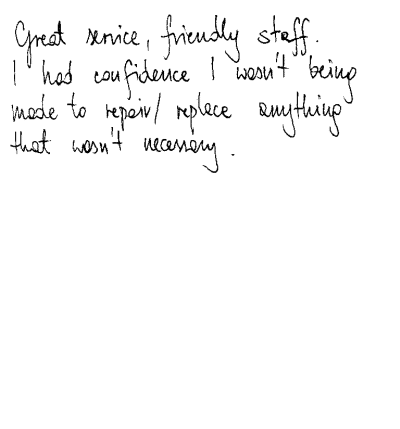 Great service, friendly staff.
I had confidence I wasn't being
made to repair/ replace anything
that wasn't necessary.